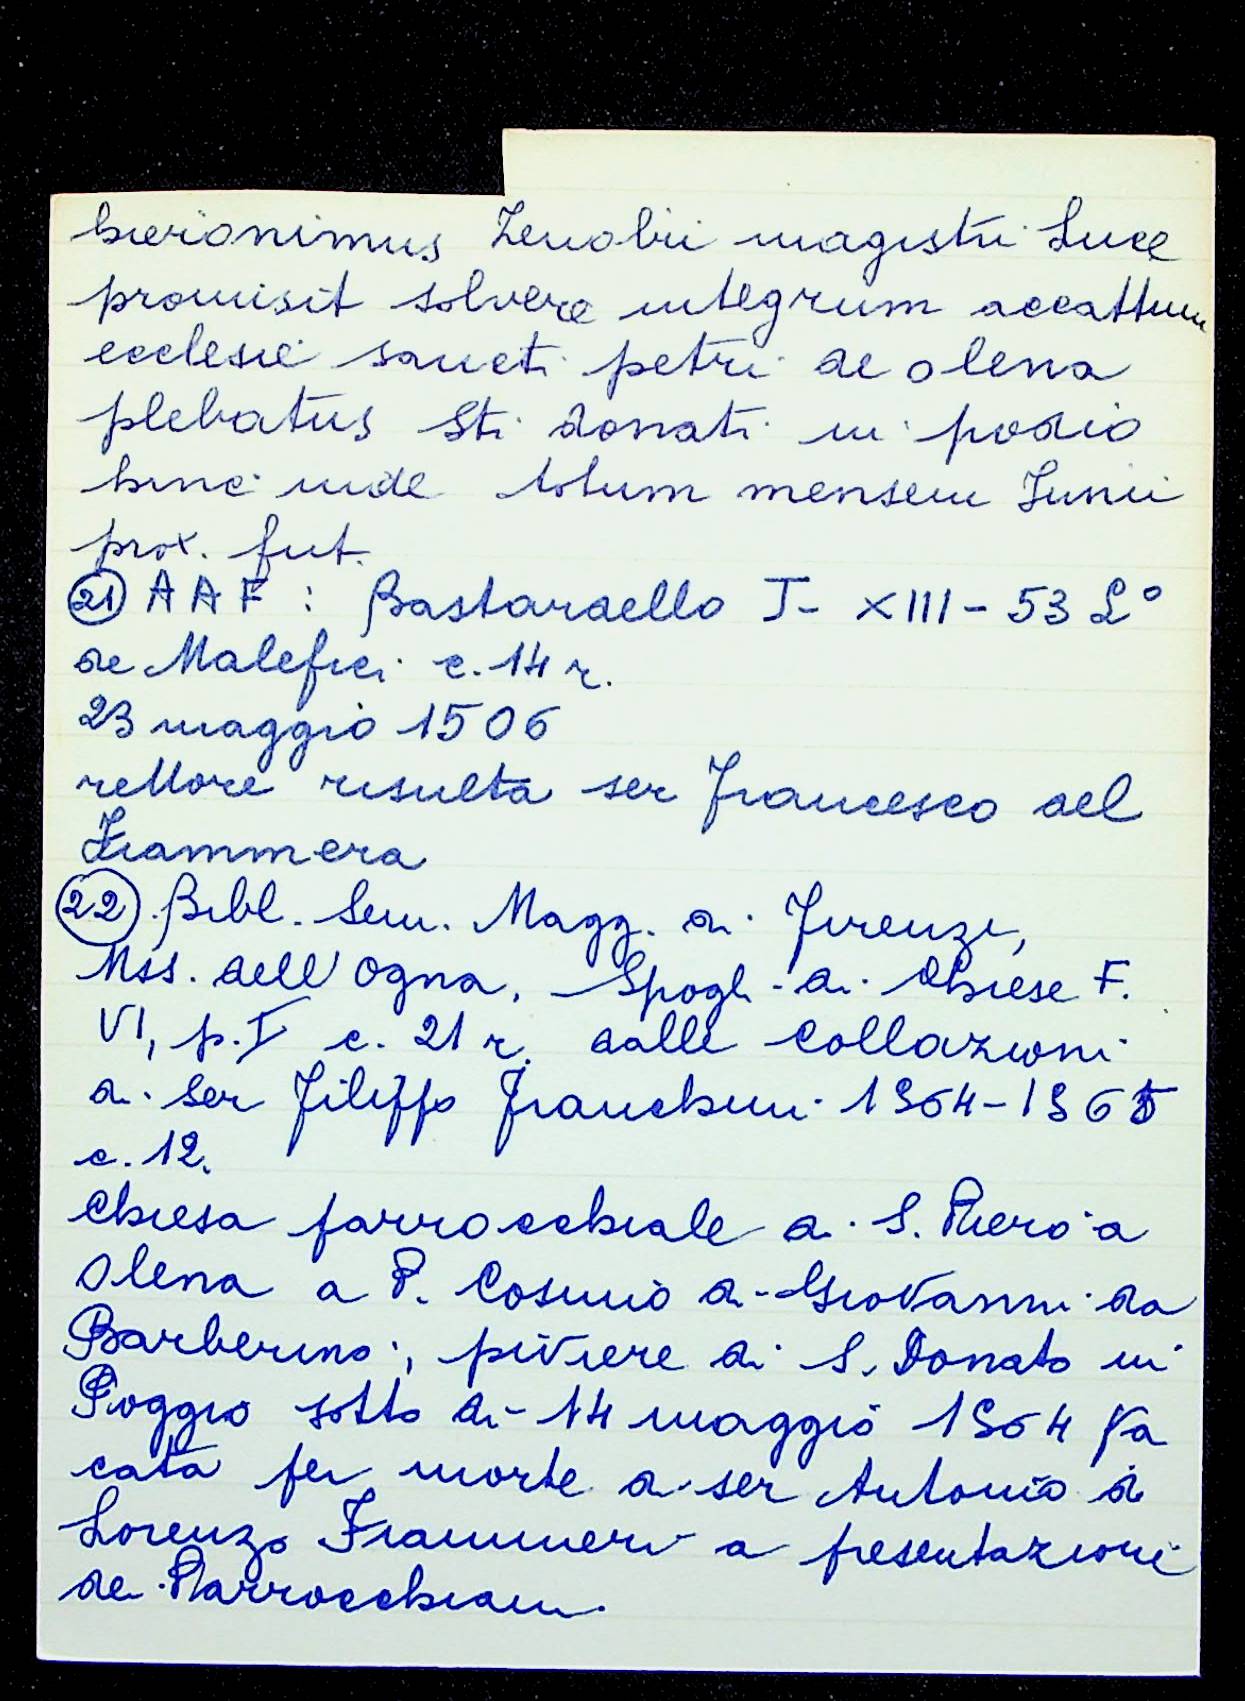 hieronimus Zenobii magistri Luce
promisit solvere integrum accattum
ecclesie sancti petri de olena
plebatus Sti donati in podio
hinc inde totum mensem Junii
prox. fut.
(21) A A F : Bastardello I- XIII - 53 L°
de Malefici c. 14 r.
23 maggio 1506
rettore risulta ser Francesco del
Trammera
(22). Bibl. Sem. Magg. di Firenze,
Mss. dell'Ogna, Spogli di Chiese F.
VI, p. I c. 21 r. dalle Collazioni
di Ser Filippo Franchini 1564-1565
c. 12.
Chiesa parrocchiale di S. Piero a
Olena a P. Cosimo di Giovanni da
Barberino, piviere di S. Donato in
Poggio sotto di 14 maggio 1564 Va
cata per morte di ser Antonio di
Lorenzo Trammeri a presentazione
dei Parrocchiani.